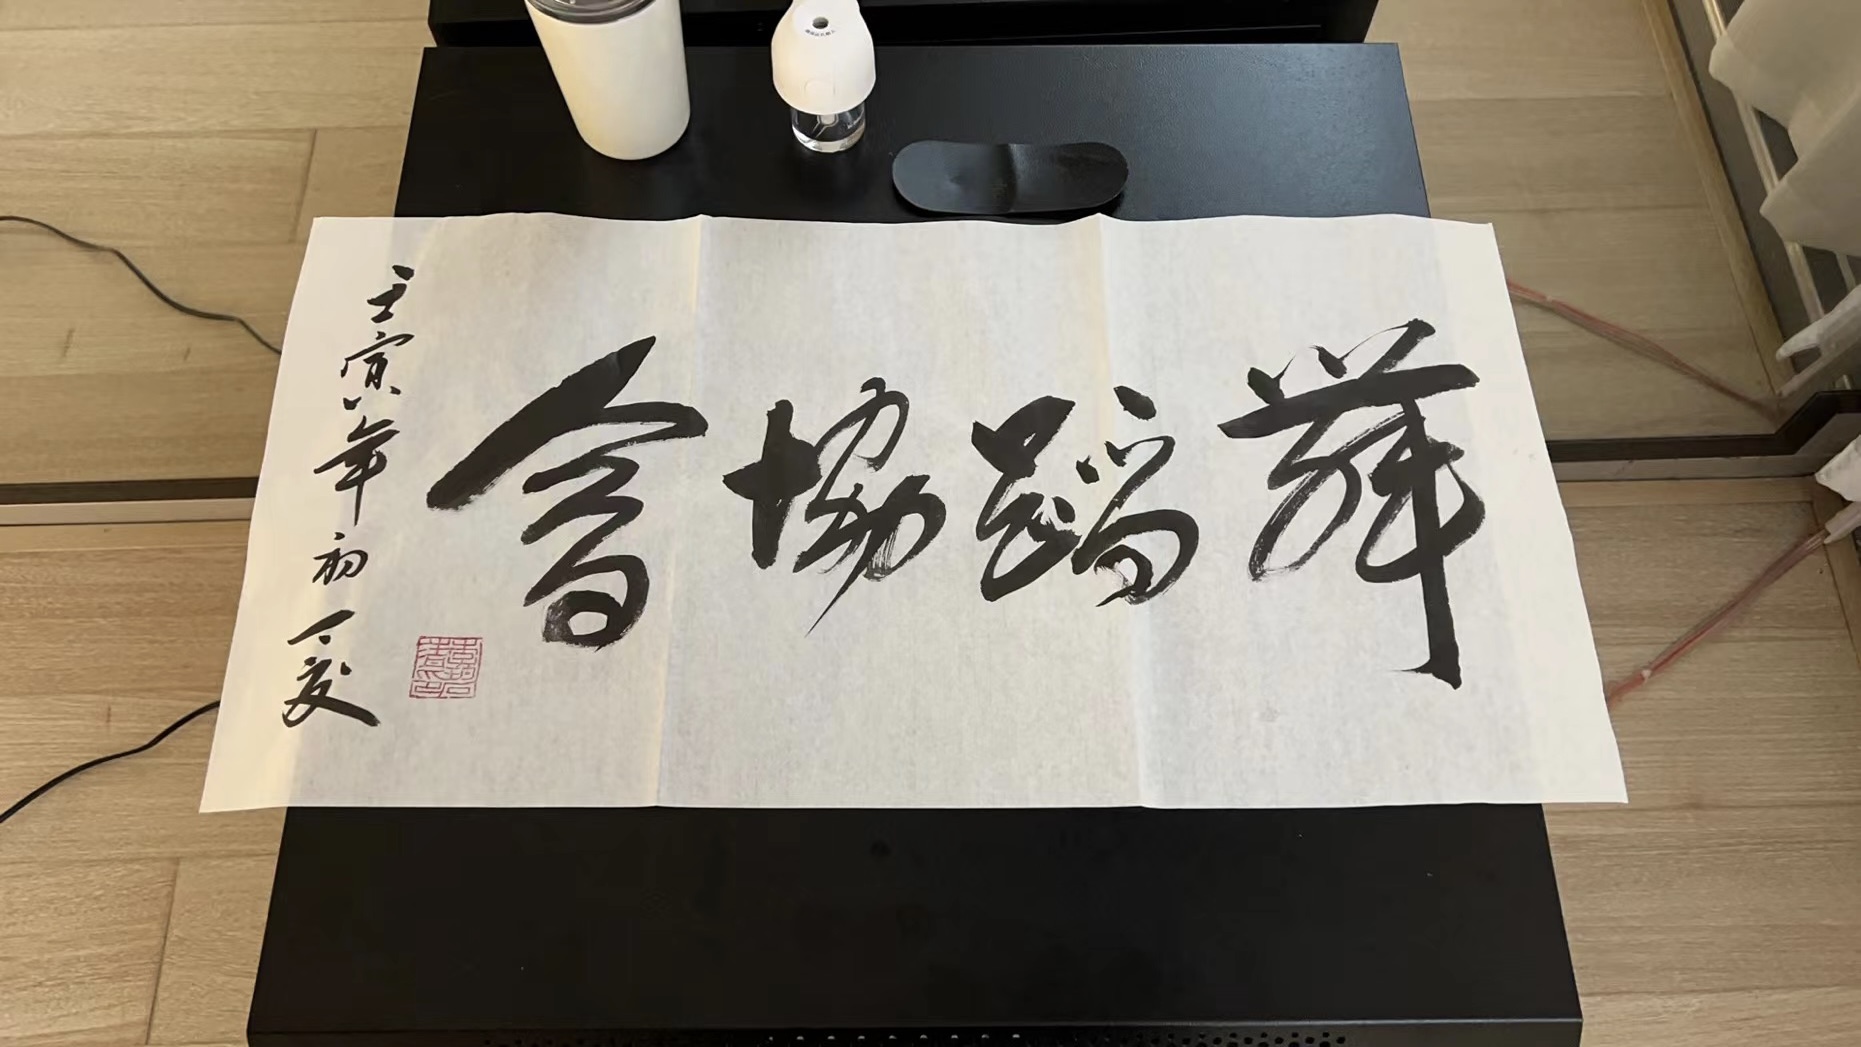 舞蹈協會
壬寅年初